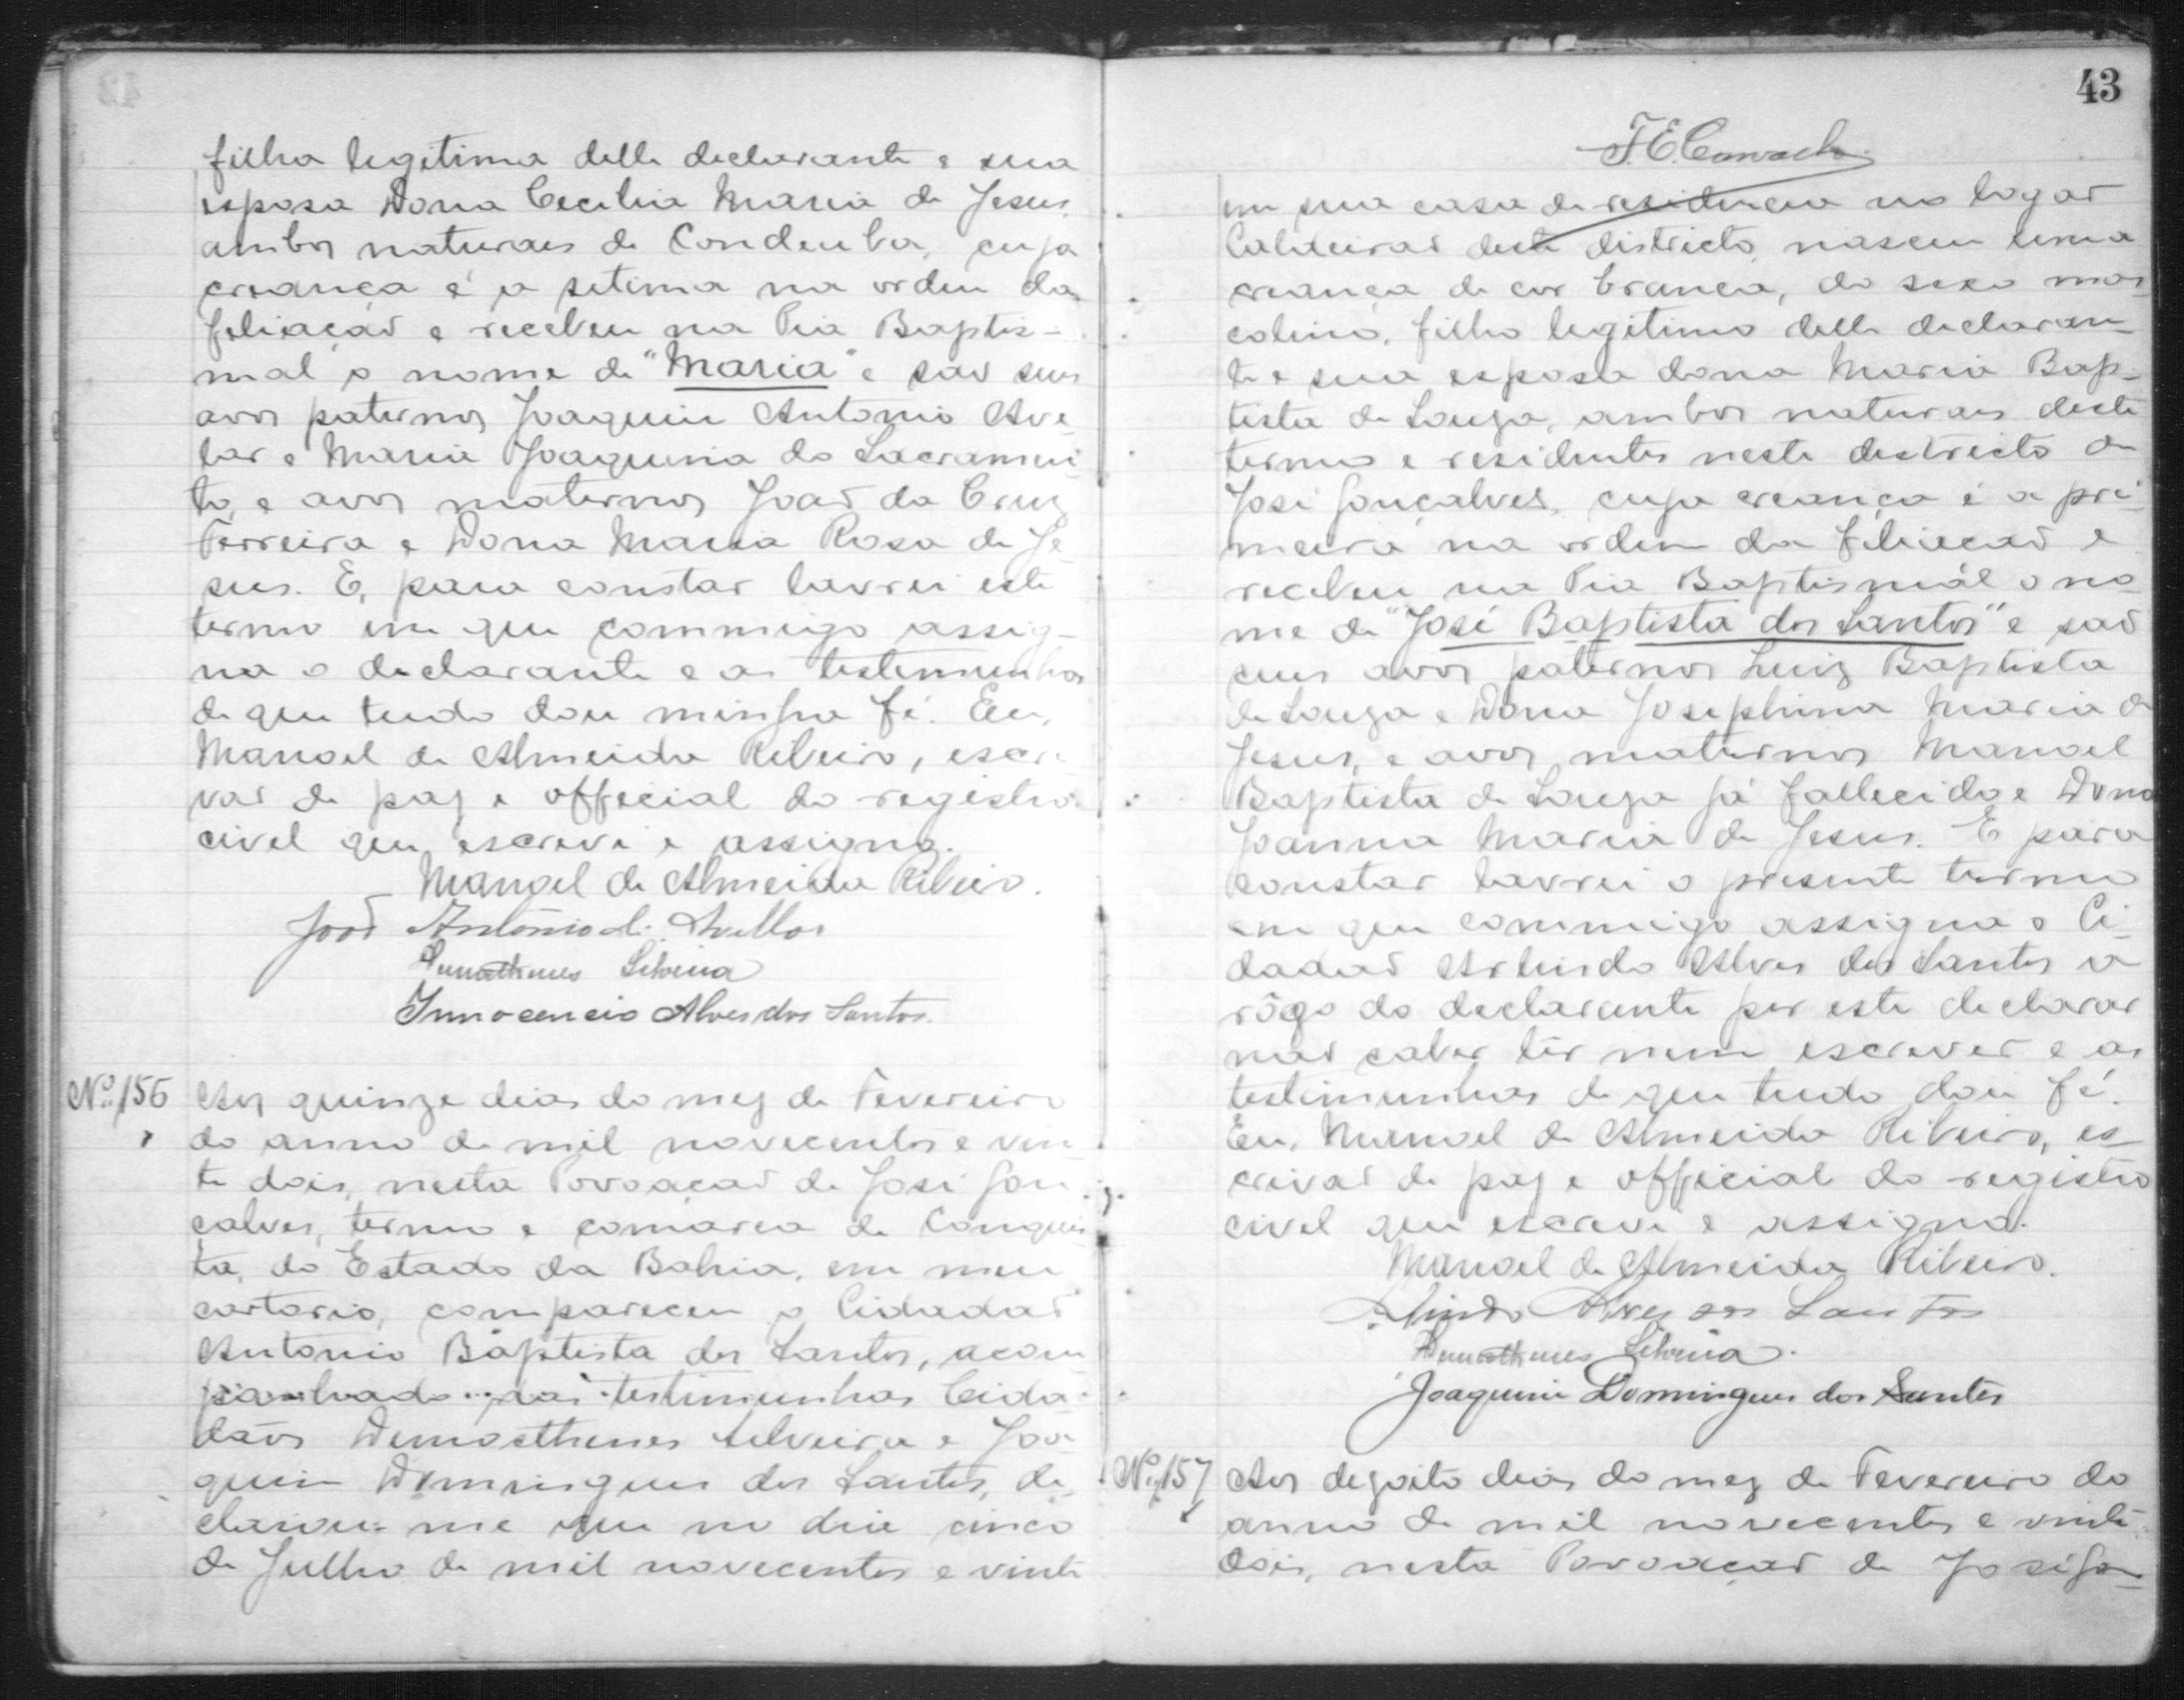 filha legitima delle declarante e sua
esposa Dona Cecilia Maria de Jesus,
ambos naturaes de Condeuba, cuja
creança é a setima na ordem da
filiaçaõ e recebeu na Pia Baptis-
mal o nome de "Maria" e saõ seus
avos paternos Joaquim Antonio Ave-
lar e Maria Joaquina do Sacramen-
to, e avos maternos Joaõ da Cruz
Ferreira e Dona Maria Rosa de Je-
sus. E, para constar lavrei este
termo em que commigo assig-
na o declarante e as testemunhas
de que tudo dou minha fé. Eu,
Manoel de Almeida Ribeiro, escri-
vaõ de paz e official do registro
civel que escrevi e assigno.
Manoel de Almeida Ribeiro.
Joaõ Antonio de Avellar
Demosthenes Silveira
Innocencio Alves dos Santos.
Nº 156
Aos quinze dias do mez de Fevereiro
do anno de mil novecentos e vin-
te dois, nesta Povoaçaõ de José Gon-
calves, termo e comarca de Conquis-
ta, do Estado da Bahia, em meu
cartorio, compareceu o Cidadaõ
Antonio Baptista dos Santos, acom
panhado das testimunhas Cida-
dãos Demosthenes Silveira e Joa-
quim Domingues dos Santos, de-
clarou-me que no dia cinco
de Julho de mil novecentos e vinte
43
em sua casa de residencia no logar
Caldeiraõ deste districto, nasceu uma
creança de cor branca, do sexo mas-
colino, filho legitimo delle declaran-
te e sua esposa dona Maria Bap-
tista de Souza, ambos naturaes deste
termo e residentes neste destricto de
José Gonçalves, cuja creança é a pri-
meira na ordem da filiacaõ e
recebeu na Pia Baptismál o no-
me de "José Baptista dos Santos" e saõ
seus avos paternos Luiz Baptista
de Souza e Dona Josephina Maria de
Jesus, e avos maternos Manoel
Baptista de Souza já fallecido e Dona
Joanna Maria de Jesus. E para
constar lavrei o presente termo
em que commigo assigna o Ci-
dadaõ Arlindo Alves dos Santos a
rôgo do declarante por este declarar
naõ saber lêr nem escrever e as
testimunhas de que tudo dou fé.
Eu, Manoel de Almeida Ribeiro, es-
crivaõ de paz e official do registro
civel que escrevi e assigno.
Manoel de Almeida Ribeiro.
Arlindo Alves dos Santos
Demosthenes Silveira.
Joaquim Domingues dos Santos
Nº 157
Aos dezoito dias do mez de Fevereiro do
anno de mil novecentos e vinte-
dois, nesta Povoaçaõ de José Gon-